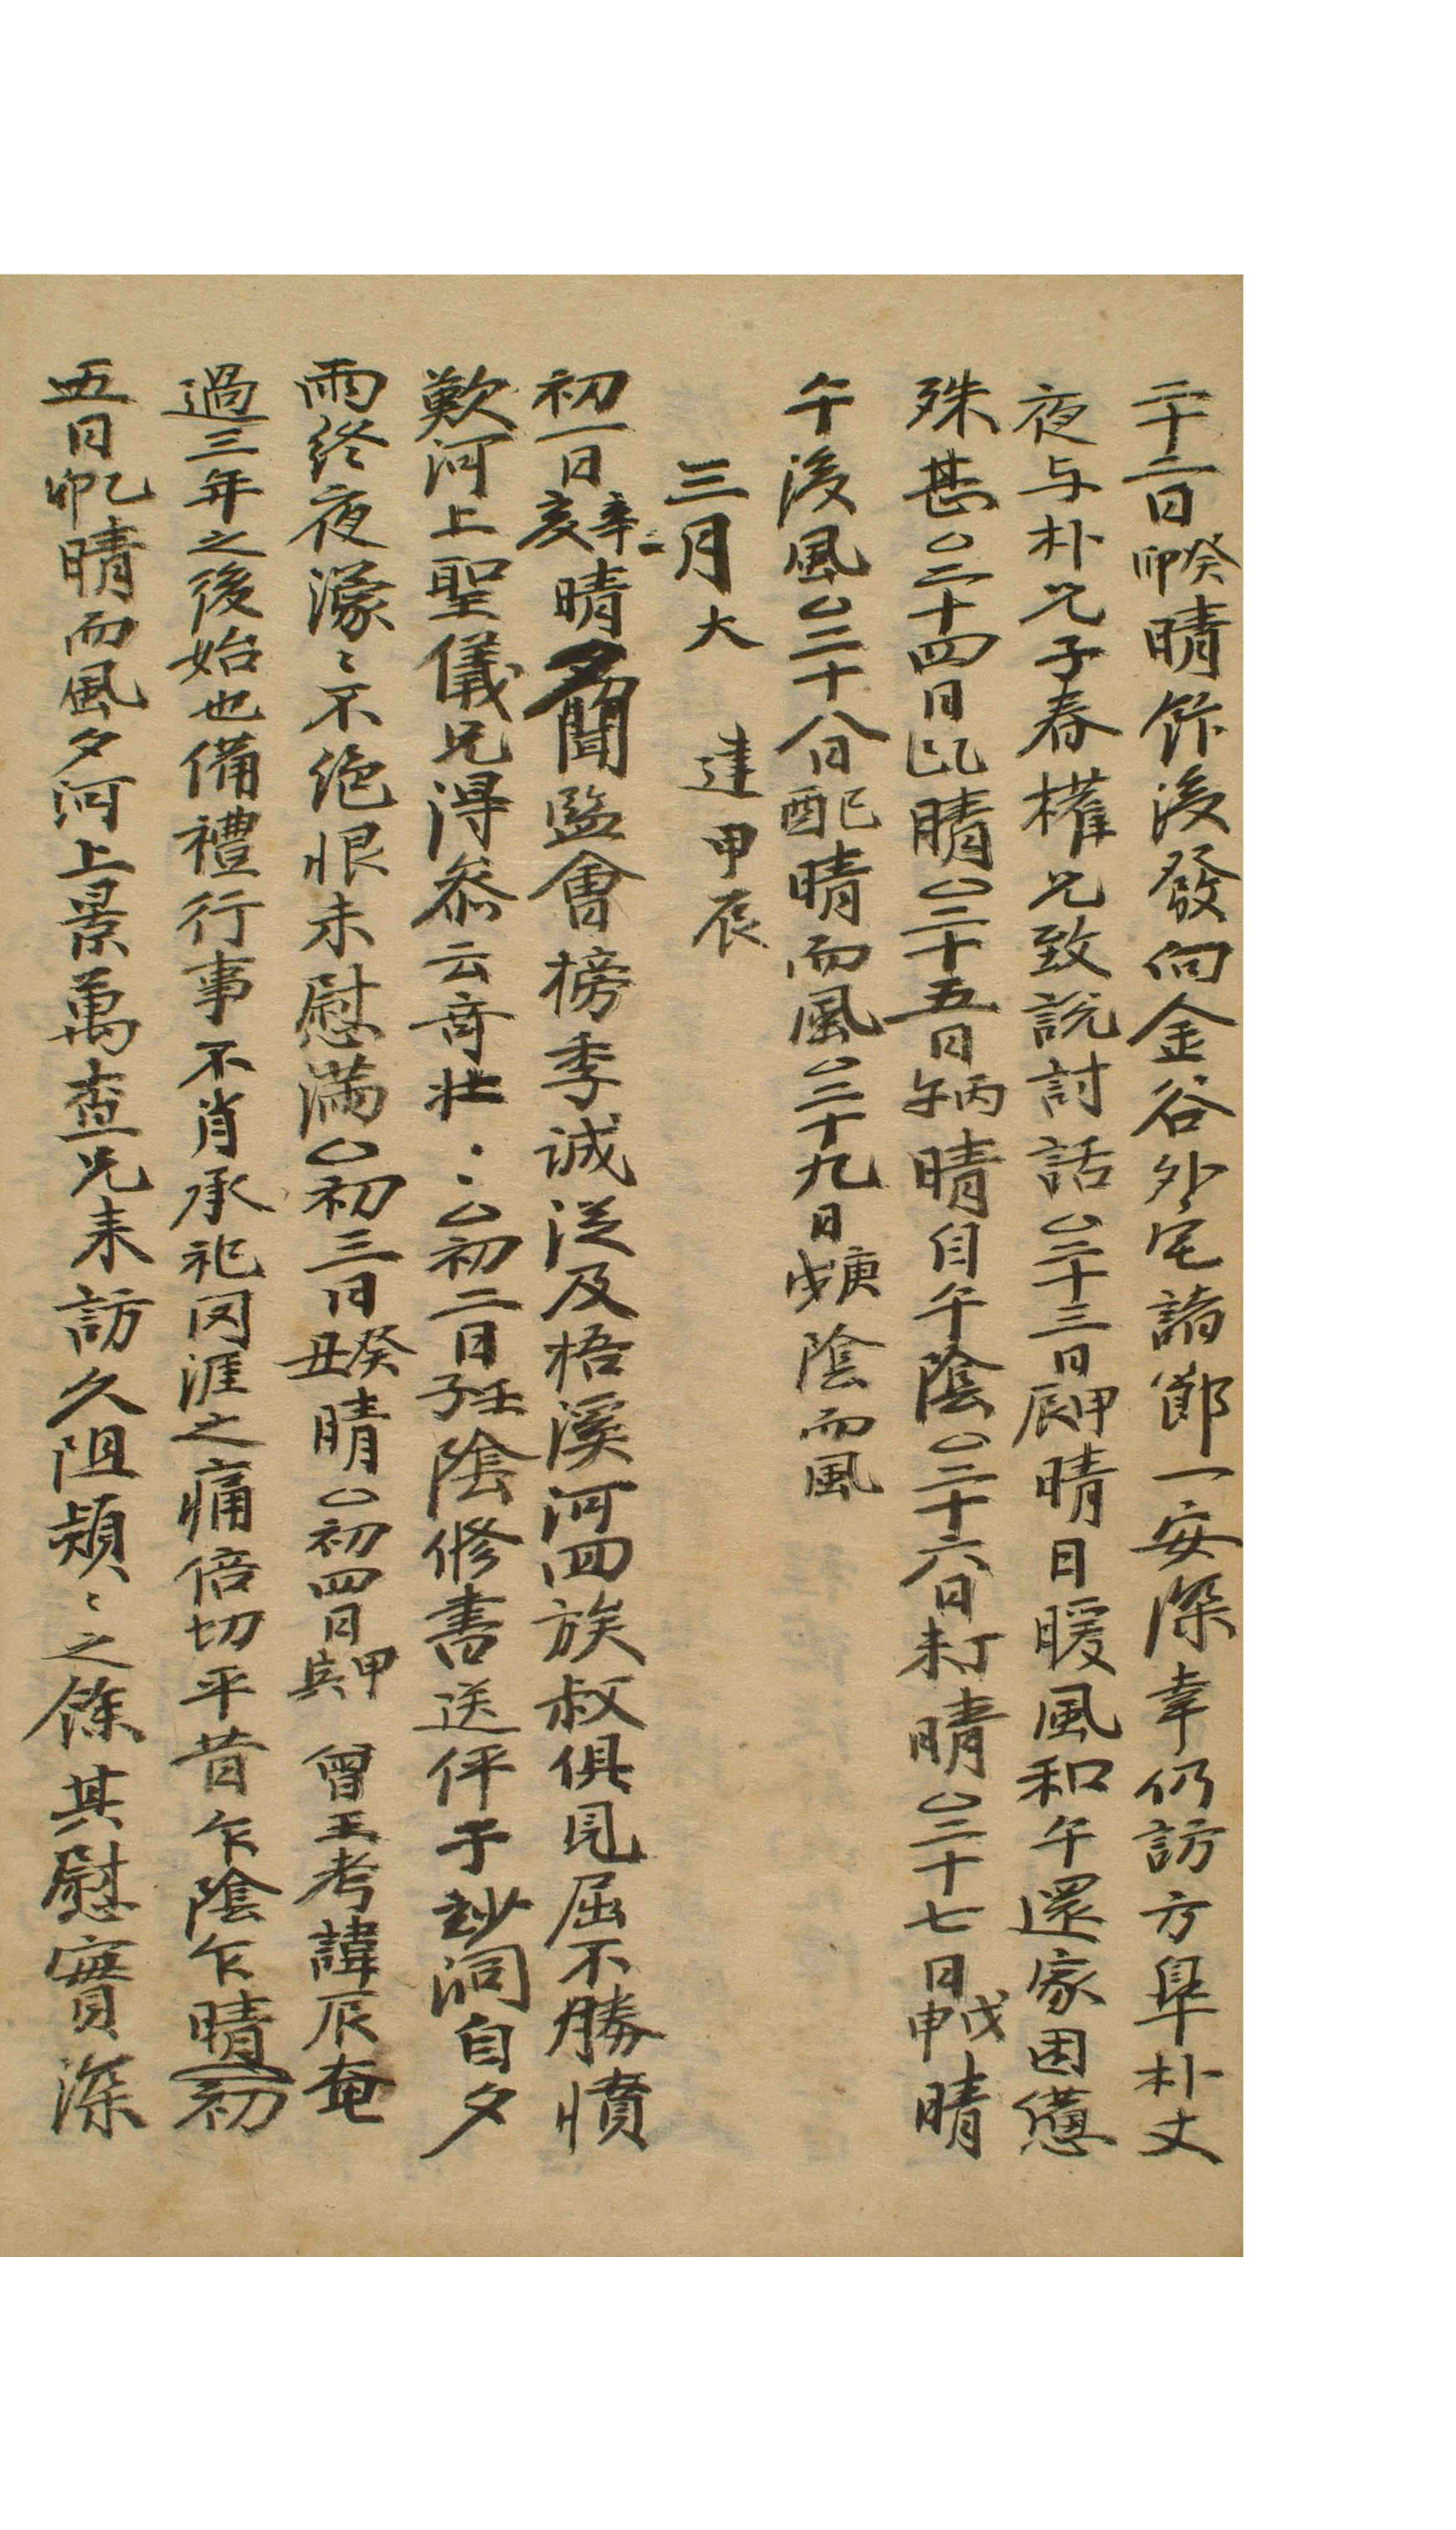 二十二日癸卯晴飰後發向金谷外宅諸節一安深幸仍訪方皐朴丈
夜与朴兄子春權兄致說討話○二十三日甲辰晴日暖風和午還家困憊
殊甚○二十四日乙巳晴○二十五日丙午晴自午陰○二十六日丁未晴○二十七日戊申晴
午後風○二十八日己酉晴而風○二十九日庚戌陰而風
三月大 建甲辰
初一日辛亥晴夕聞監會榜季誠從及梧溪河四族叔俱見屈不勝憤
歎河上聖儀兄得參云奇壯ミミ○初二日壬子陰修書送伻于妙洞自夕
雨終夜濛ミ不絶恨未慰滿○初三日癸丑晴○初四日甲寅 曾王考諱辰奄
過三年之後始也備禮行事不肖承祀罔涯之痛倍切平昔乍陰乍晴○初
五日乙卯晴而風夕河上景萬査兄來訪久阻頫ミ之餘其慰實深